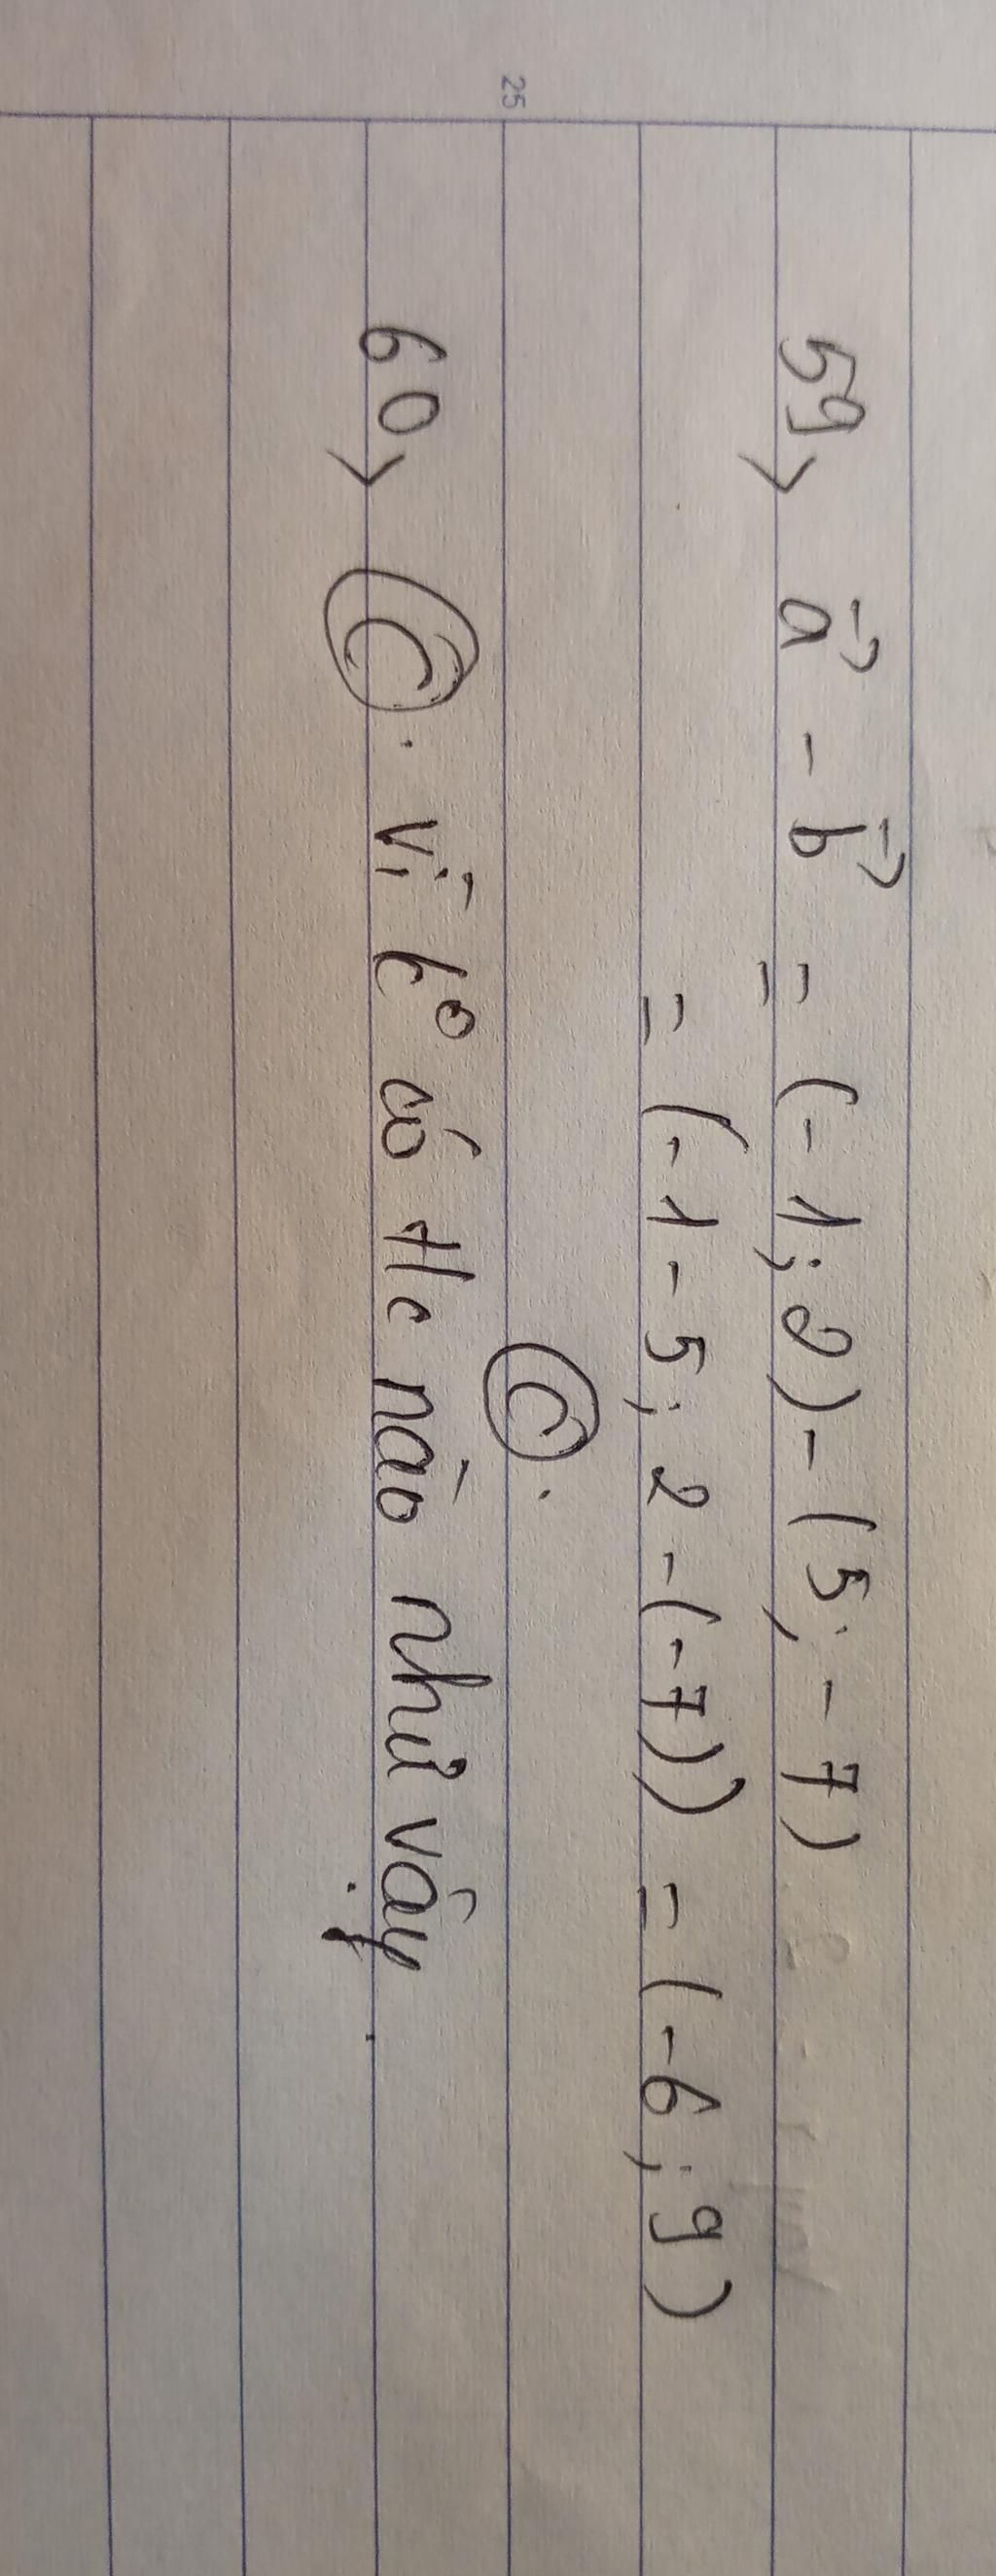 59> a⃗ - b⃗ = (-1; 2) - (5; -7)
= (-1-5; 2-(-7)) = (-6; 9)
25
C.
60> C. Vì k° có t/c nào như vậy.